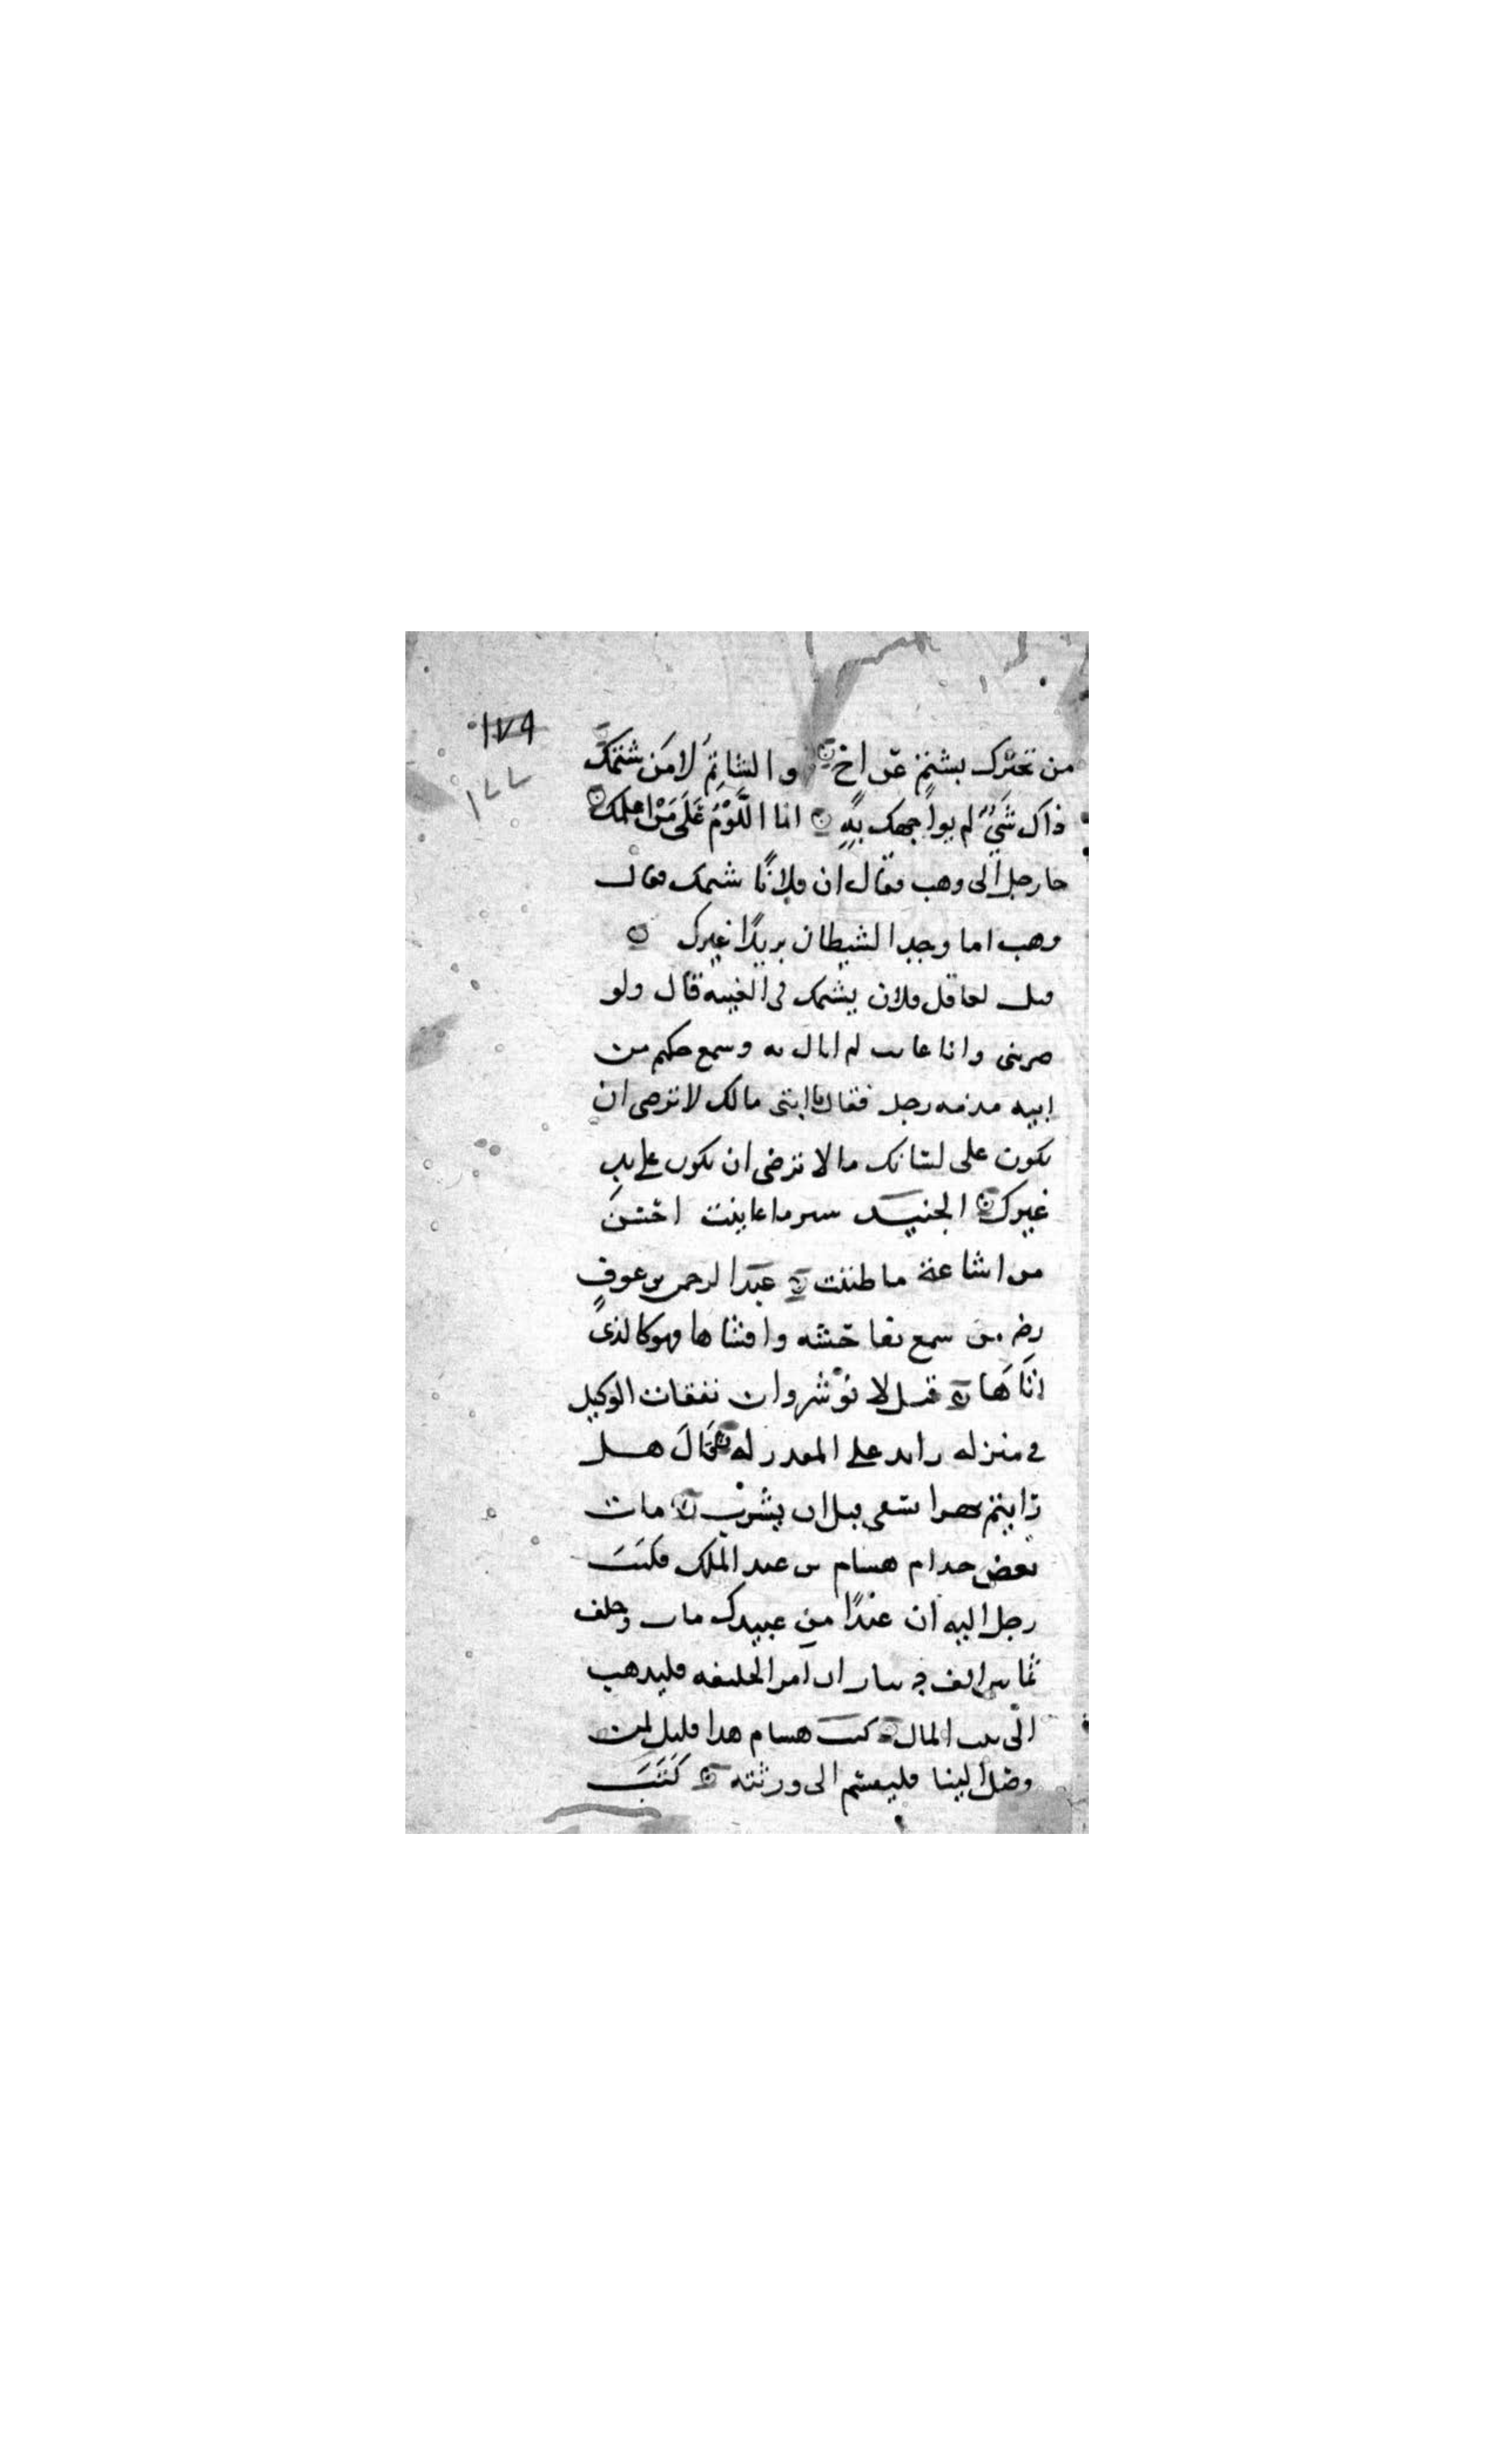 ١٧٩
١٧٧
من يخبرك بشتم عن اخ ۞ والشاتم لا من شتمك
ذاك شيء لم يواجهك به ۞ انما اللوم على من اعلمك ۞
جا رجل الى وهب فقال ان فلانا شتمك فقال
وهب اما وجد الشيطان بريدا غيرك ۞
قيل لعاقل فلان يشتمك في الغيبه قال ولو
ضربني وانا غايب لم ابال به وسمع حكيم من
ابنه مذمه رجل فقال يا بني مالك لا ترضى ان
يكون على لسانك ما لا ترضى ان يكون على يد
غيرك ۞ الجنيد ستر ما عاينت احسن
من اشاعة ما ظننت ۞ عبد الرحمن بن عوف
رض من سمع بفاحشه وافشاها فهو كالذي
اتاها ۞ قيل لانوشروان نفقات الوكيل
في منزله زايد على المقدر له فقال هل
رايتم نهرا يسقي قبل ان يشرب ۞ مات
بعض خدام هشام بن عبد الملك فكتب
رجل اليه ان عبدا من عبيدك مات وخلف
ثمانين الف دينار ان امر الخليفه فليذهب
الى بيت المال ۞ كتب هشام هذا قليل لمن
وصل الينا فليقسم الى ورثته ۞ كتب